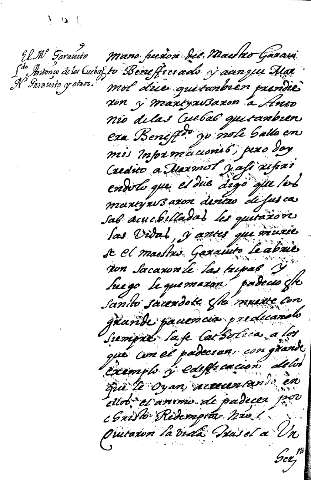 El Mº Garavito
Pdo. Antonio de las Cuebas
Mano fueron del Maestro Garavi
to Beneficiado y aunque Mar
mol dize que tambien prendie
ron y Martyrizaron a Anto
nio de las Cuebas que tambien
era Benifdo yo no le hallo en
mis informaciones, pero doy
credito a Marmol y assi refiri
endolo que el dize digo que los
martyrizaron dentro de sus ca
sas acuchilladas les quitaron
las vidas, y antes que murie
se el maestro Garavito le abrie
ron sacaronle las tripas y
luego le quemaron padecio este
santo sacerdote esta muerte con
grande paciencia predicando
siempre la fe Catholica a los
que con el padecian con grande
exemplo y edificacion de los
que le oyan acrecentando en
ellos el animo de padecer por
Christo Redemptor Nro.
Quitaron la vida tras el a Un